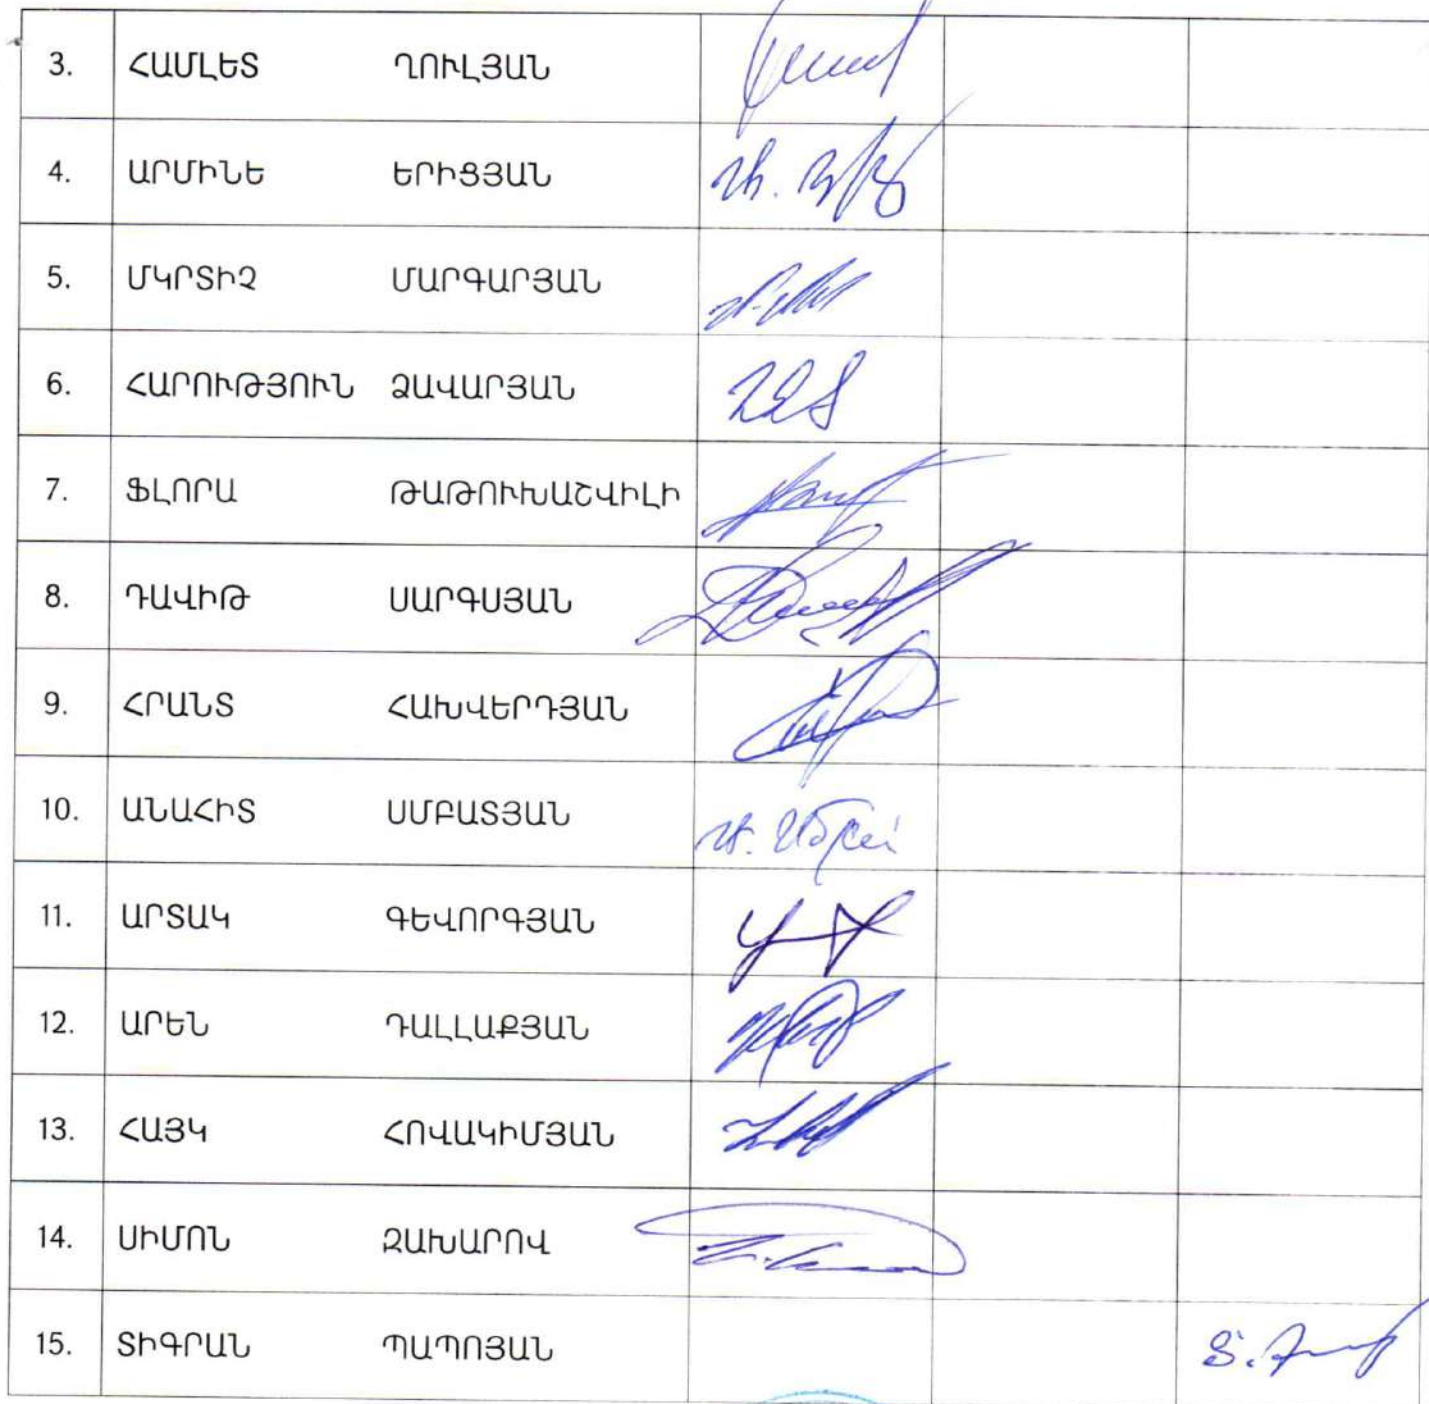 3. ՀԱՄԼԵՏ ՂՈՒԼՅԱՆ
4. ԱՐՄԻՆԵ ԵՐԻՑՅԱՆ
5. ՄԿՐՏԻՉ ՄԱՐԳԱՐՅԱՆ
6. ՀԱՐՈՒԹՅՈՒՆ ՁԱՎԱՐՅԱՆ
7. ՖԼՈՐԱ ԹԱԹՈՒԽԱՇՎԻԼԻ
8. ԴԱՎԻԹ ՍԱՐԳՍՅԱՆ
9. ՀՐԱՆՏ ՀԱԽՎԵՐԴՅԱՆ
10. ԱՆԱՀԻՏ ՍՄԲԱՏՅԱՆ
11. ԱՐՏԱԿ ԳԵՎՈՐԳՅԱՆ
12. ԱՐԵՆ ԴԱԼԼԱՔՅԱՆ
13. ՀԱՅԿ ՀՈՎԱԿԻՄՅԱՆ
14. ՍԻՄՈՆ ԶԱԽԱՐՈՎ
15. ՏԻԳՐԱՆ ՊԱՊՈՅԱՆ